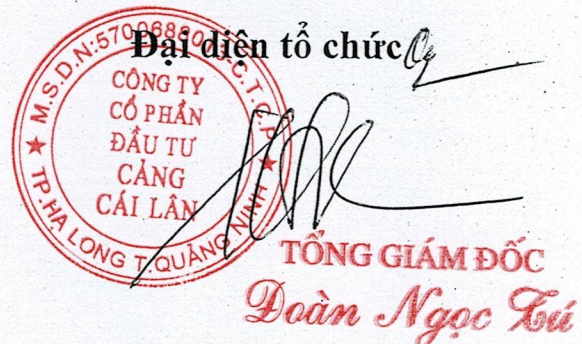 Đại diện tổ chức
CÔNG TY
CỔ PHẦN
ĐẦU TƯ
CẢNG
CÁI LÂN
TP.HẠ LONG T.QUẢNG NINH
TỔNG GIÁM ĐỐC
Đoàn Ngọc Tú